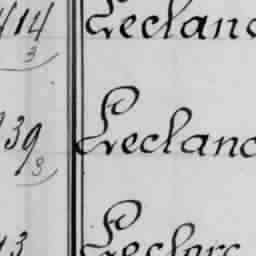 414 Leclanc
3
39 Leclanc
3
13 Leclerc